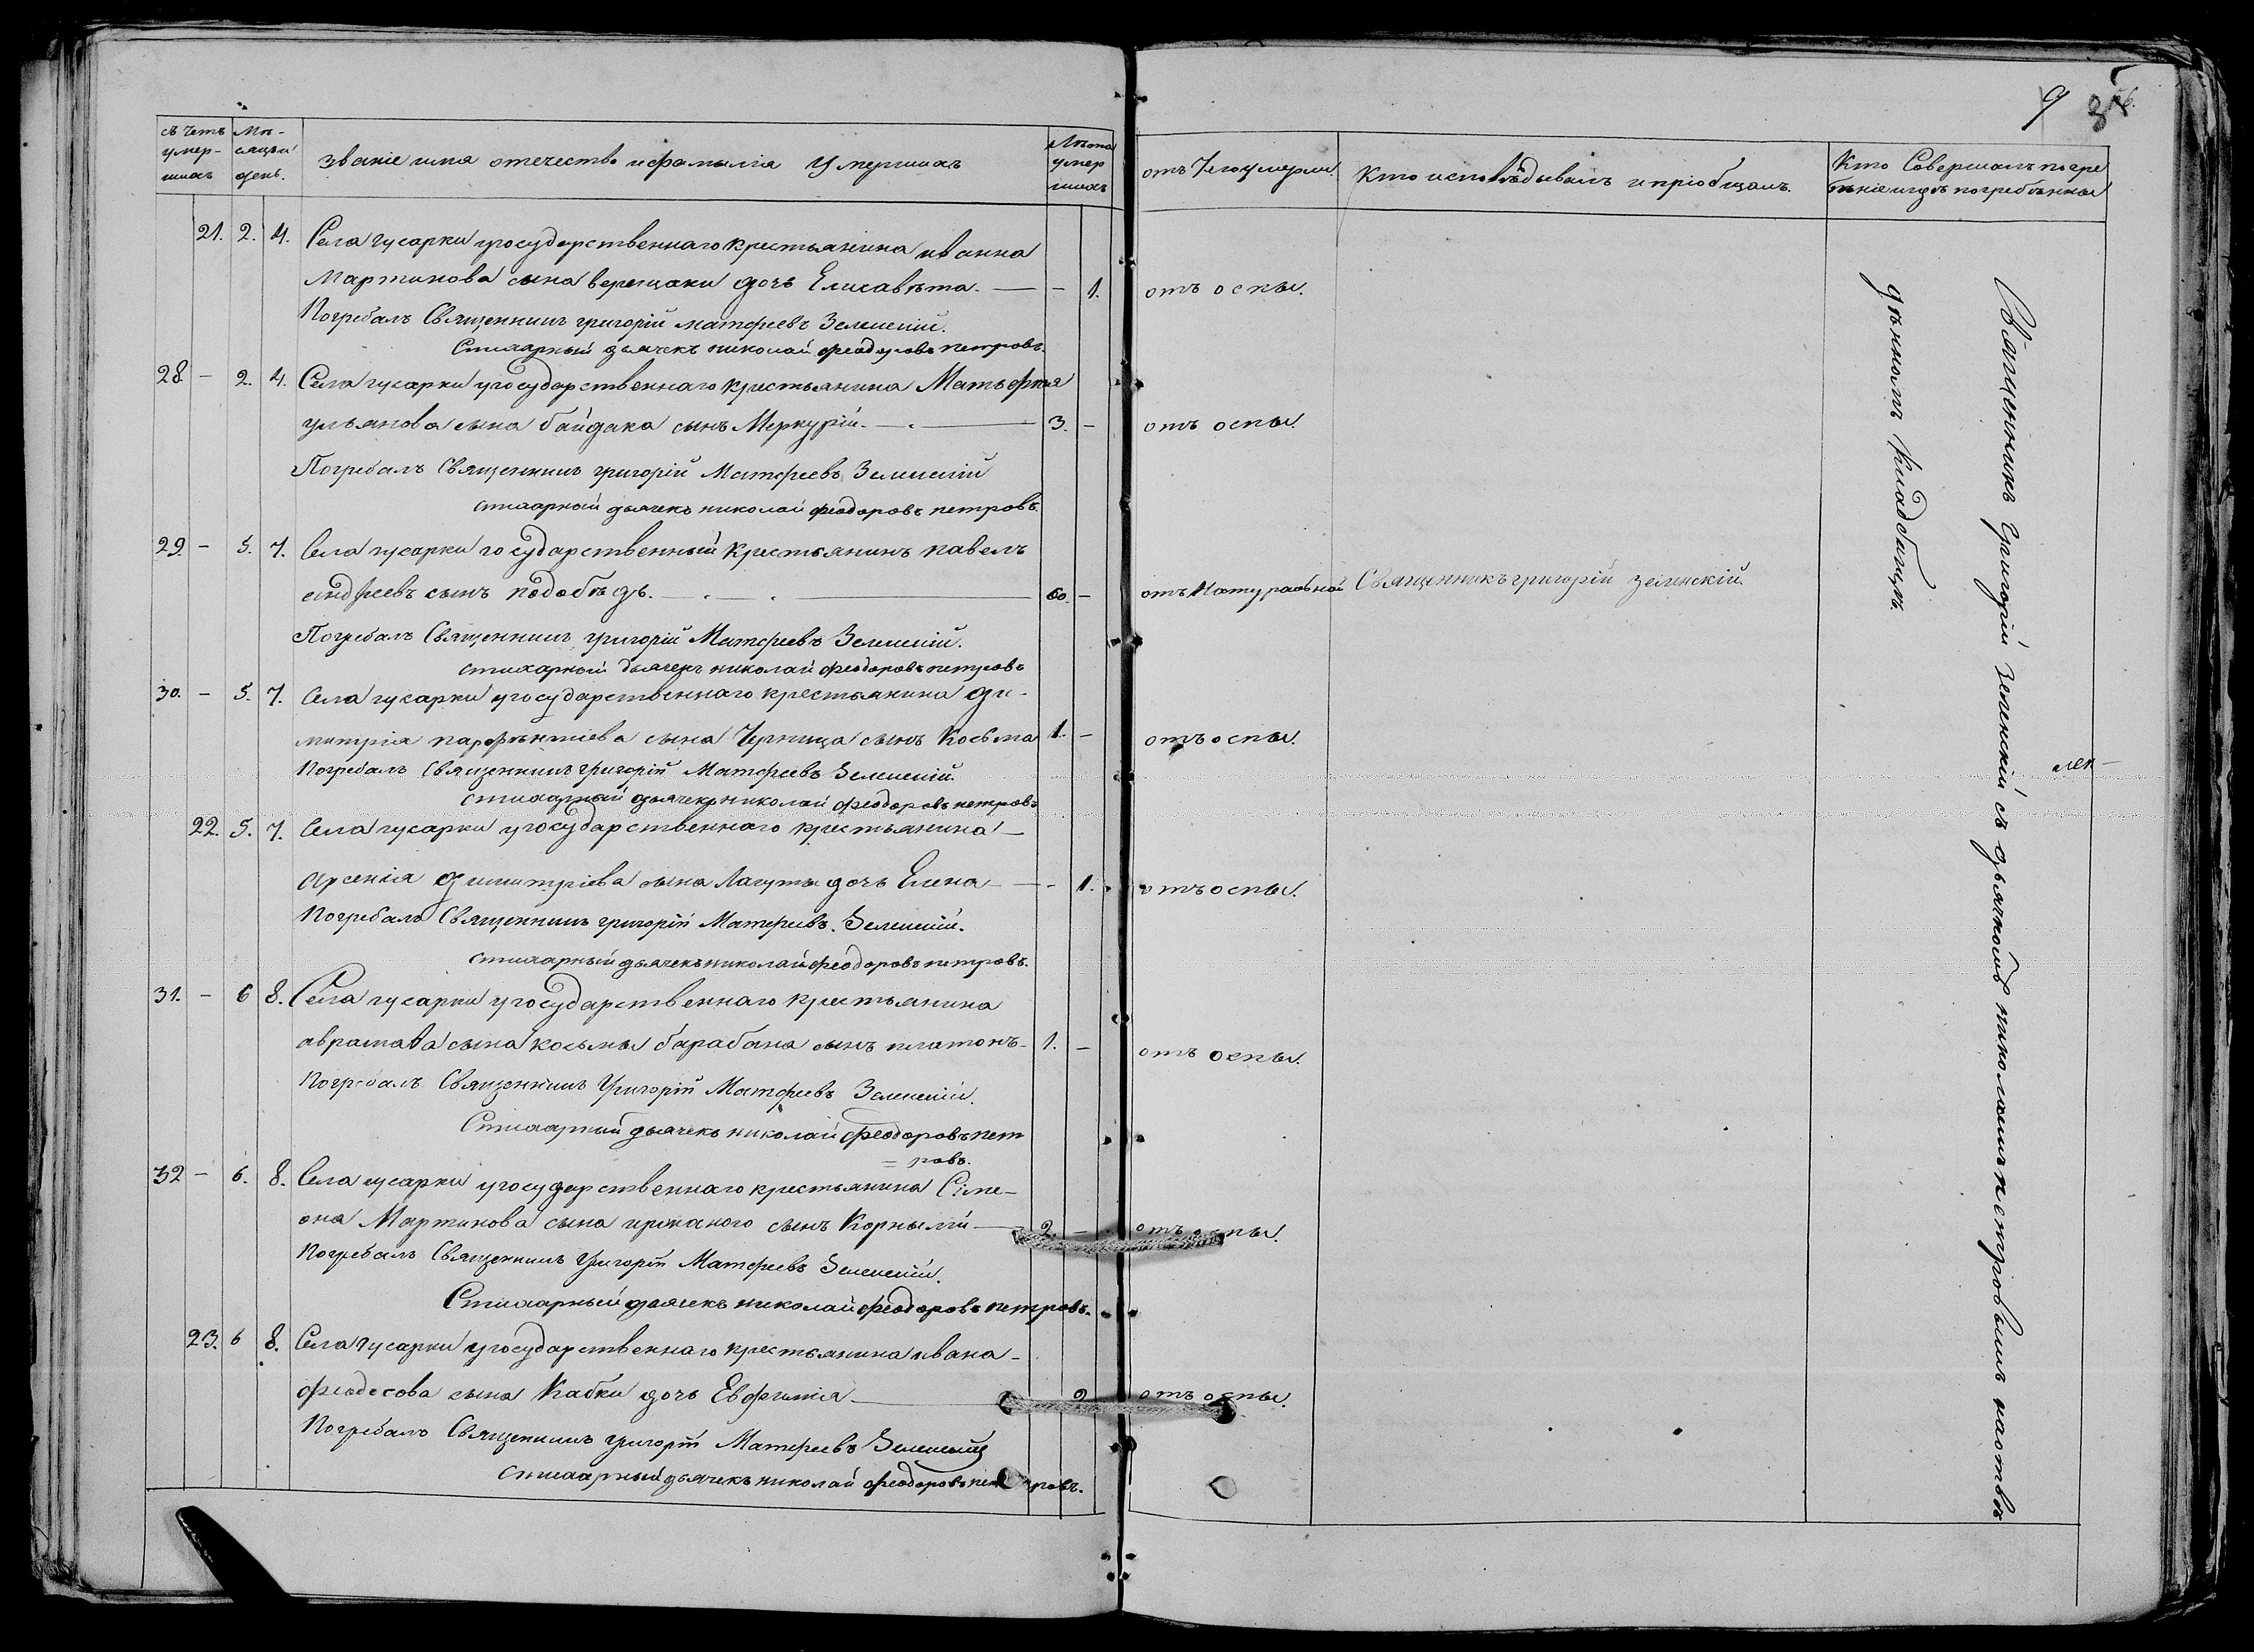 счетъ умер-шихъ
Мѣ-сяцъи день.
Званіе имя отечество и фамылія Умершихъ
Лѣта умер шихъ
отъ Чего умерли.
Кто исповѣдывалъ и пріобщалъ.
Кто Совершалъ погре
бѣніе и гдѣ погребѣнны
9
21. 2. 4. Села гусарки у государственнаго крестьянина иванна
Мартинова сына верещаки дочь Елисавѣта. — – 1. отъ оспы.
Погребалъ Священникъ григорій матфеевъ Зеленскій.
Стихарный дьячекъ николай феодоровъ петровъ.
28 – 2. 4. Села гусарки у государственнаго крестьянина Матьфея
ульянова сына байдака сынъ Меркурій. — 3. – отъ оспы.
Погребалъ Священникъ григорій Матфеевъ Зеленскій
стихарный дьячекъ николай феодоровъ петровъ.
29 – 5. 7. Села гусарки государственный крестьянинъ павелъ
андреевъ сынъ подобѣдъ. — 60. – отъ Натуральной Священникъ григорій зеленскій.
Погребалъ Священникъ григорій Матфеевъ Зеленскій.
стихарный дьячекъ николай феодоровъ петровъ
30. – 5. 7. Села гусарки у государственнаго крестьянина ди-
митрія парфентіева сына Черница сынъ Косьма 1. – отъ оспы.
Погребалъ Священникъ григорій Матфеевъ Зеленскій.
стихарный дьячекъ николай феодоровъ петровъ
22. 5. 7. Села гусарки у государственнаго крестьянина —
Арсенія димитріева сына Лагуты дочь Елена — – 1. отъ оспы.
Погребалъ Священникъ григорій Матфеевъ. Зеленскій.
стихарный дьячекъ николай феодоровъ петровъ.
31. – 6 8. Села гусарки у государственнаго крестьянина
аврамава сына косьмы барабана сынъ платонъ – 1. – отъ оспы.
Погребалъ Священникъ Григорій Матфеевъ Зеленскій.
Стихарный дьячекъ николай феодоровъ пет
= ровъ.
32 – 6. 8. Села гусарки у государственнаго крестьянина Сіме-
она Мартинова сына сынъ Корнылій — 2. – отъ оспы.
Погребалъ Священникъ Григорій Матфеевъ Зеленскій.
Стихарный дьячекъ николай феодоровъ петровъ.
23. 6 8. Села гусарки у государственнаго крестьянина ивана –
феодосова сына Кабки дочь Евфимія — 2 отъ оспы.
Погребалъ Священникъ григорій Матфеевъ Зеленскій
стихарный дьячекъ николай феодоровъ петровъ.
Священникъ Григорій Зеленскій съ дьячкомъ николаемъ петровымъ наотвѣ
дѣнномъ кладбищѣ.